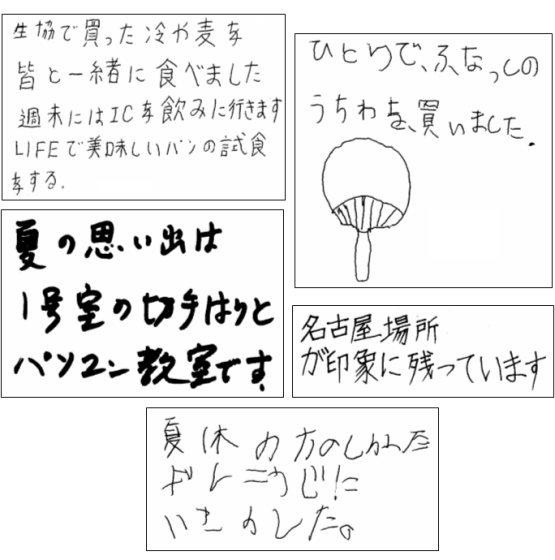 生協で買った冷や麦を
皆と一緒に食べました
週末にはICを飲みに行きます
LIFEで美味しいパンの試食
をする.
ひとりで、ふなっしの
うちわを、買いました.
夏の思い出は
1号室の切手はりと
パソコン教室です.
名古屋場所
が印象に残っています
夏休 のたのしかった
いきました。